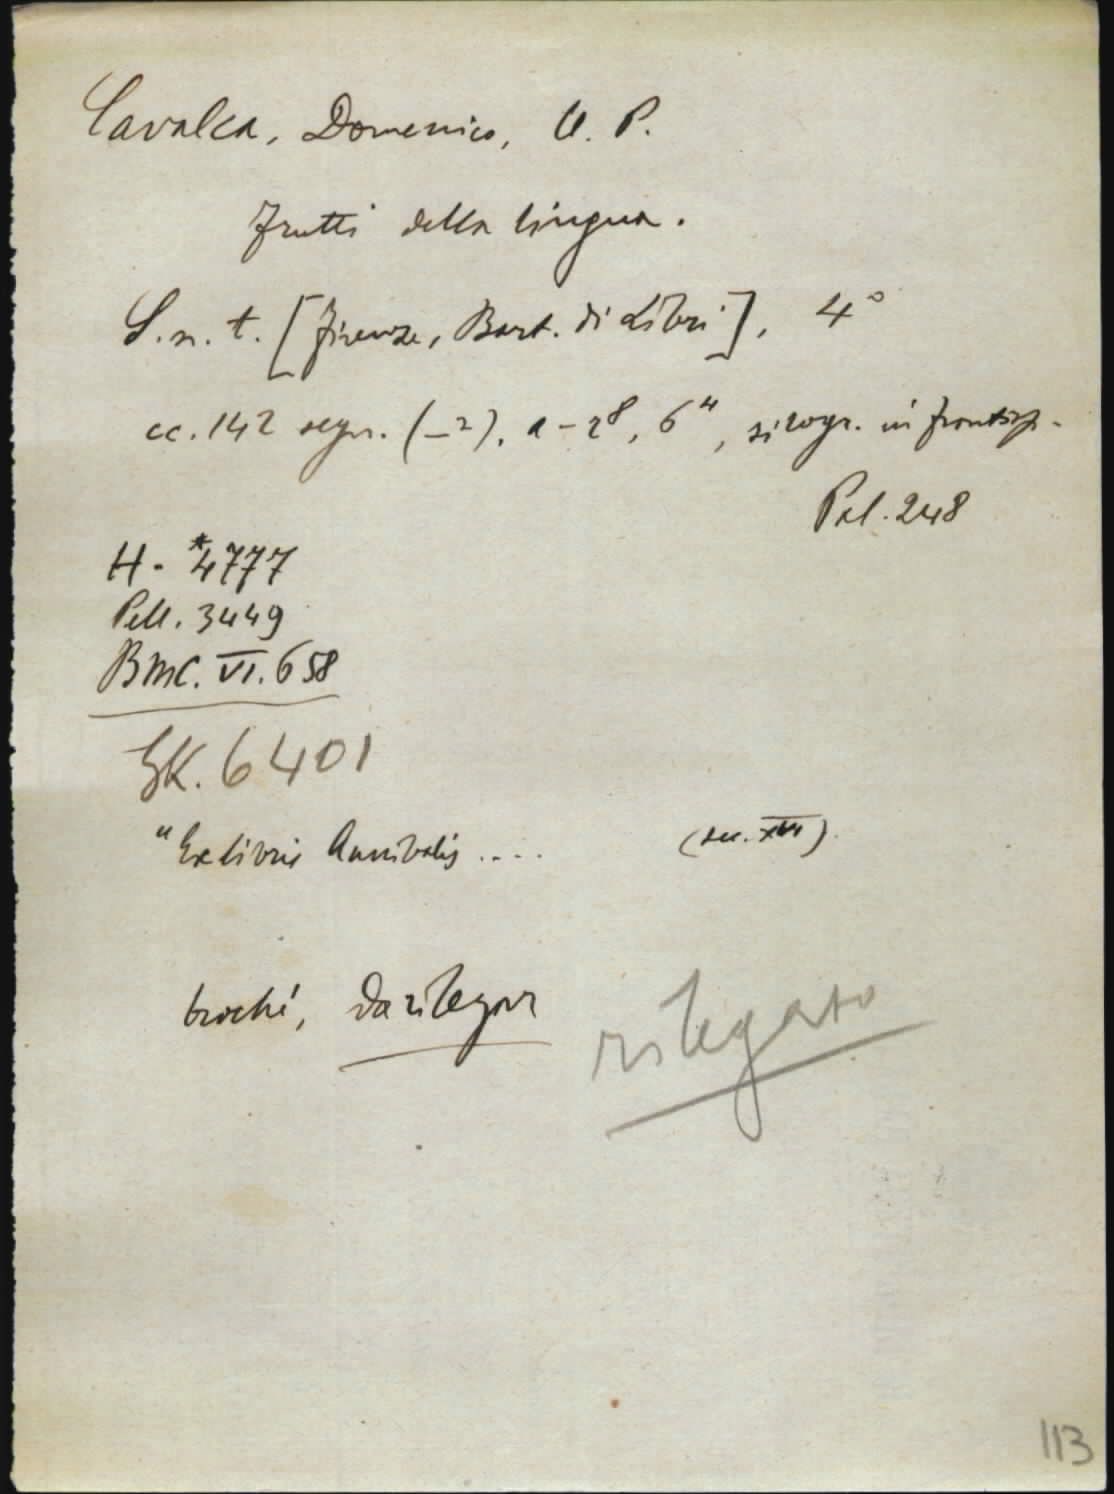 Cavalca, Domenico, O. P.
Frutti della lingua.
S. n. t. [Firenze, Bart. di Libri], 4°
cc. 142 segn. (-2), a-r8, 64, silogr. in frontisp.
Pal. 248
H. *4777
Pell. 3449
BMC. VI. 658
GK. 6401
"Ex libris Annibalis ....
(sec. XVI).
broché, da rilegar
rilegato
113